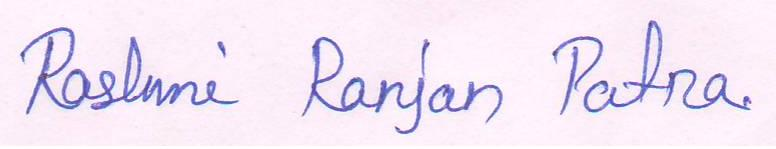 Rashmi Ranjan Patra.